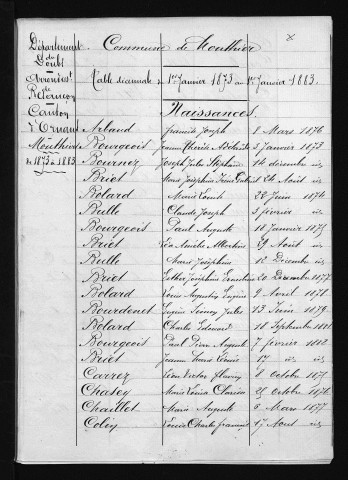 Département du Doubs
Arrondiss.t de Besançon
Canton d'Ornans
Mouthier
de 1873 à 1883
Commune de Mouthier
Table décennale 1er Janvier 1873 au 1er Janvier 1883.
Naissances.
Arland François Joseph 8 Mars 1876
Bourgeois Jeanne 5 janvier 1873
Bournez Joseph Jules Stéphane 14 décembre id
Briet Marie Joséphine 24 Août id
Bolard Marie 22 Juin 1874
Bulle Claude Joseph 5 février id
Bourgeois Paul Auguste 18 Janvier 1875
Briet 29 Août id
Bulle Marie Joséphine 12 Décembre id
Briet Esther Joséphine Ernestine 20 Décembre 1877
Bolard Louis Augustin Eugène 9 Avril 1878
Bourdenet Eugène Jules 13 Juin 1879
Bolard Charles Edouard 18 Septembre 1881
Bourgeois Paul Auguste 7 février 1882
Briet Jeanne Marie 17 id id
Carrez Léon Victor 8 octobre 1875
Chasey Marie Louise 25 octobre 1876
Chaillet Marie Auguste 6 Mars 1877
Colin Louis Charles François 17 Août id